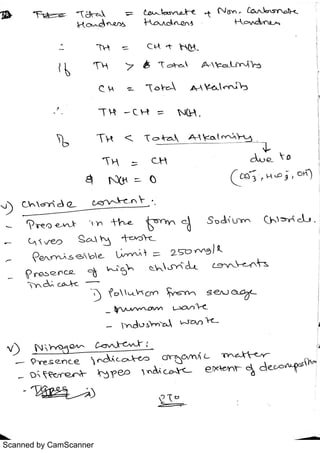 Total Hardness = Carbonate Hardness + Non. Carbonate Hardness
∴ TH = CH + NCH.
If TH > Total Alkalinity
CH = Total Alkalinity
∴ TH - CH = NCH.
If TH < Total Alkalinity
TH = CH due to
& NCH = 0 (CO3, HCO3, OH)
v) Chloride content:
- Present in the form of Sodium Chloride.
- Gives Salty taste.
- Permissible Limit = 250 mg/l
- Presence of high chloride contents indicate
i) Pollution from sewage
- human waste
- Industrial waste
v) Nitrogen Content:
- Presence indicates organic matter
- Different types indicate extent of decomposition
- Types i)
PTO
Scanned by CamScanner